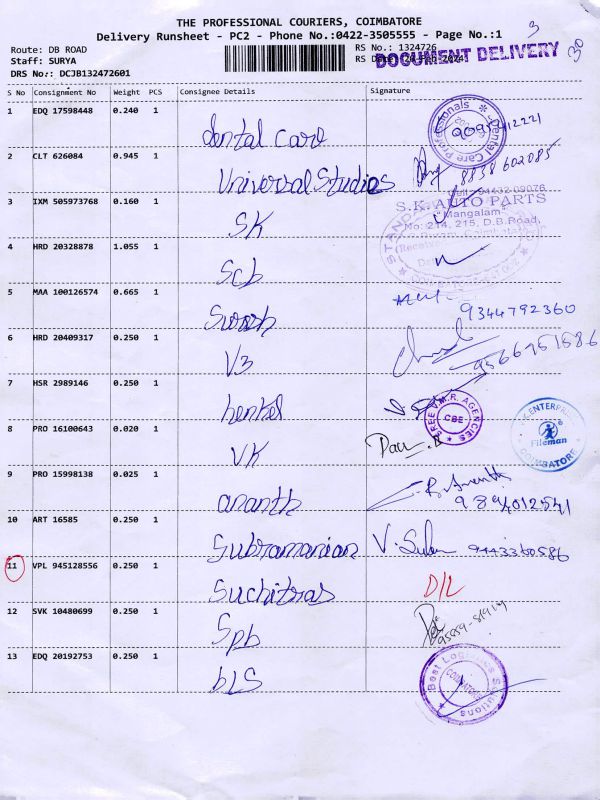 THE PROFESSIONAL COURIERS, COIMBATORE
Delivery Runsheet - PC2 - Phone No.:0422-3505555 - Page No.:1
3
30
Route: DB ROAD
Staff: SURYA
DRS No.: DCJB132472601
RS No.: 1324726
RS D
DOCUMENT DELIVERY
S No Consignment No Weight PCS Consignee Details Signature
1 EDQ 17598448 0.240 1 dental care
Dental Care Professionals
2 CLT 626084 0.945 1 Universal Studios 8838602085
3 IXM 505973768 0.160 1 SK
Cell: 94432 09076
S.K. AUTO PARTS
"Mangalam"
No: 214, 215, D.B.Road,
4 HRD 20328878 1.055 1 Scb
5 MAA 100126574 0.665 1 Suresh 9344792360
6 HRD 20409317 0.250 1 V3
7 HSR 2989146 0.250 1 henkel
SREE V.M.R. AGENCIES
CBE
8 PRO 16100643 0.020 1 VK
Fileman
COIMBATORE
9 PRO 15998138 0.025 1 ananth
10 ART 16585 0.250 1 Subramanian 9443360586
11 VPL 945128556 0.250 1 Suchitras D/L
12 SVK 10480699 0.250 1 Spb
13 EDQ 20192753 0.250 1 bLS
Best Logistics Solutions